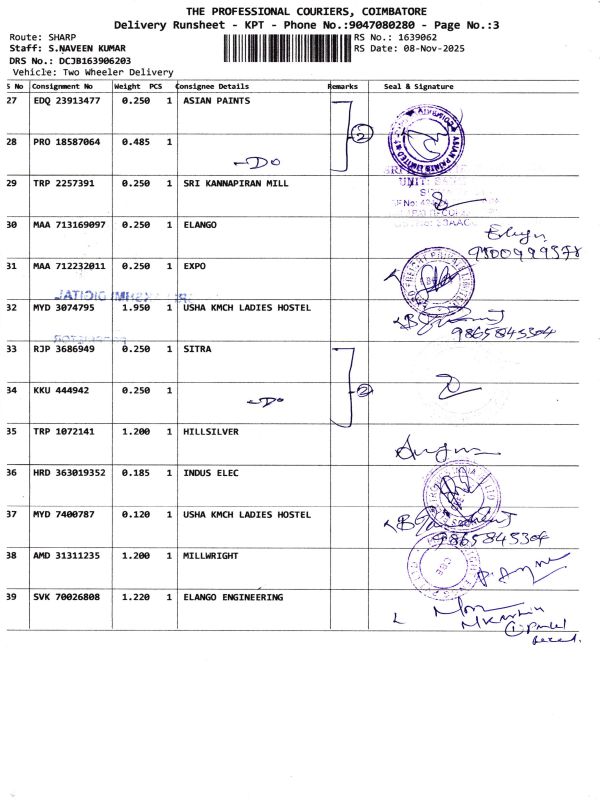 THE PROFESSIONAL COURIERS, COIMBATORE
Delivery Runsheet - KPT - Phone No.:9047080280 - Page No.:3
Route: SHARP RS No.: 1639062
Staff: S.NAVEEN KUMAR RS Date: 08-Nov-2025
DRS No.: DCJB163906203
Vehicle: Two Wheeler Delivery
S No Consignment No Weight PCS Consignee Details Remarks Seal & Signature
27 EDQ 23913477 0.250 1 ASIAN PAINTS
②
28 PRO 18587064 0.485 1
-Do
29 TRP 2257391 0.250 1 SRI KANNAPIRAN MILL
30 MAA 713169097 0.250 1 ELANGO
31 MAA 712232011 0.250 1 EXPO
32 MYD 3074795 1.950 1 USHA KMCH LADIES HOSTEL
9865845304
33 RJP 3686949 0.250 1 SITRA
34 KKU 444942 0.250 1 ②
-Do
35 TRP 1072141 1.200 1 HILLSILVER
36 HRD 363019352 0.185 1 INDUS ELEC
37 MYD 7400787 0.120 1 USHA KMCH LADIES HOSTEL
9865845304
38 AMD 31311235 1.200 1 MILLWRIGHT
39 SVK 70026808 1.220 1 ELANGO ENGINEERING